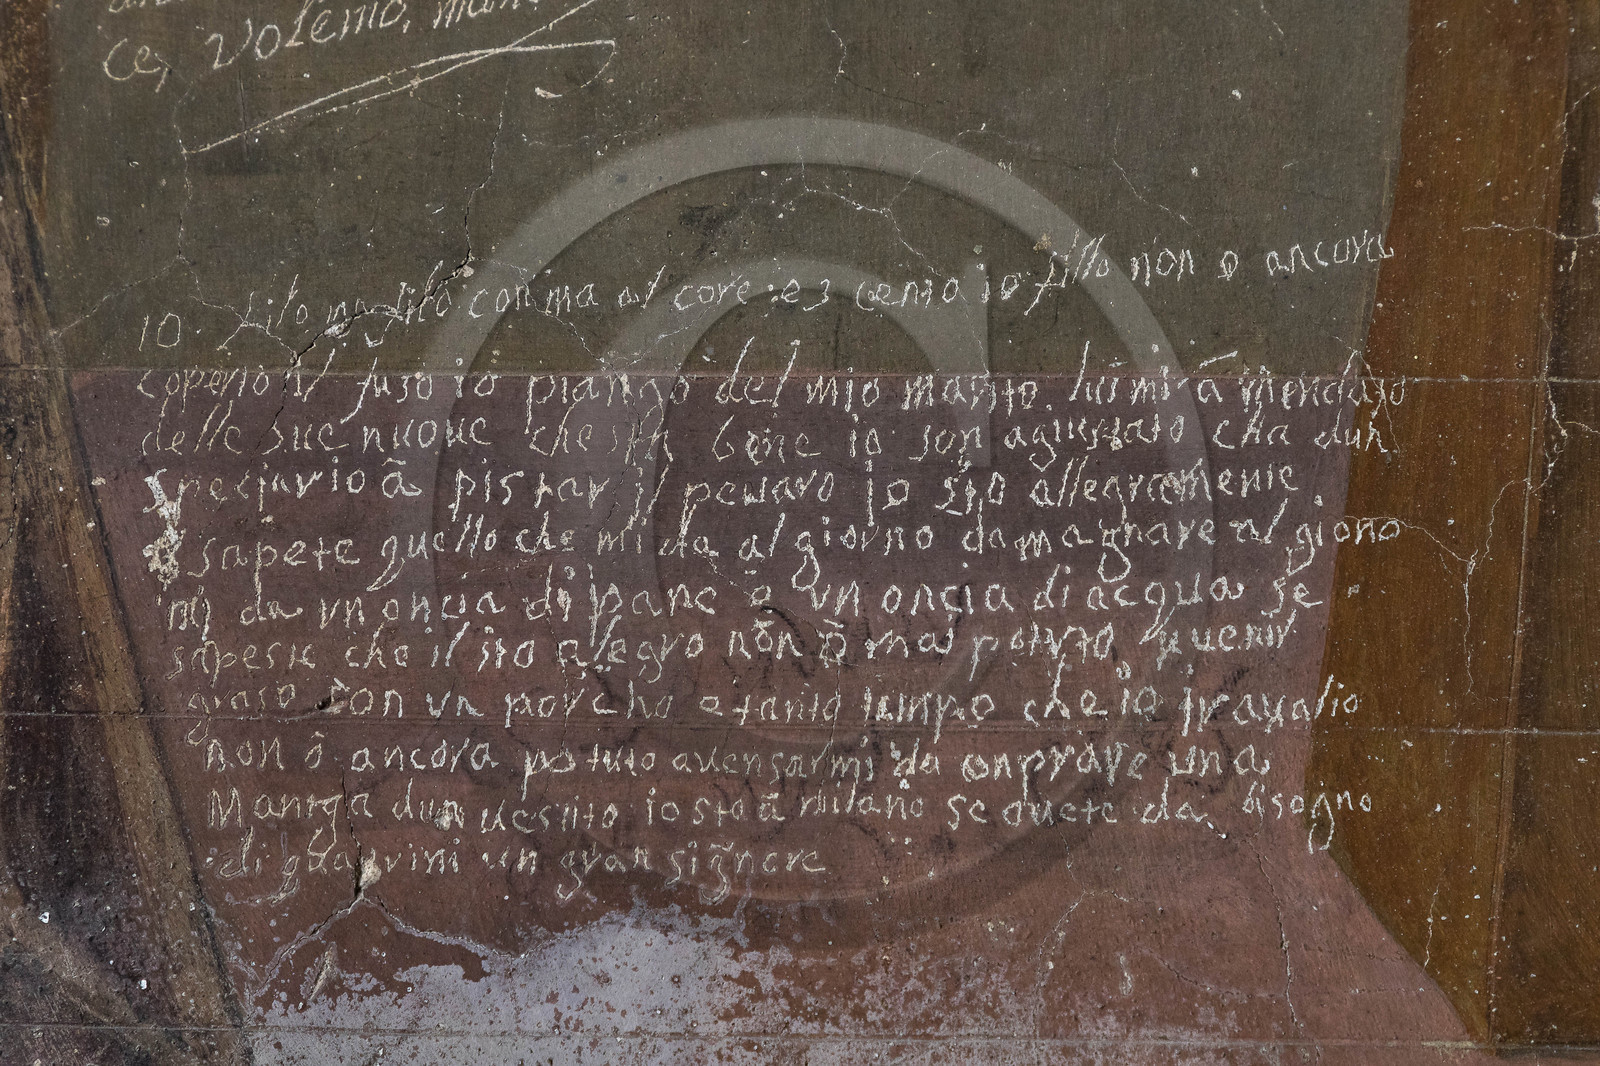 ce, Volemo, man
IO filo no filo con ma al core e 3 cento io fillo non o ancora
coperto il fuso io piango del mio marito lui mi a mendato
delle sue nuove che sta bene io son agiustato cha dun
speciario ã pistar il pevaro io sto allegramente
sapete quello che mi da al giorno da magnare al giono
mi da vn oncia di pane e vn oncia di acqua se
sapeste che il sto alegro non õ mai potuto veuenir
graso con vn porcho e tanto tempo che io travalio
non õ ancora potuto avensarmi da conprare una
Manega dun vestito io sto ã milano se avete da bisogno
di gran un gran signore